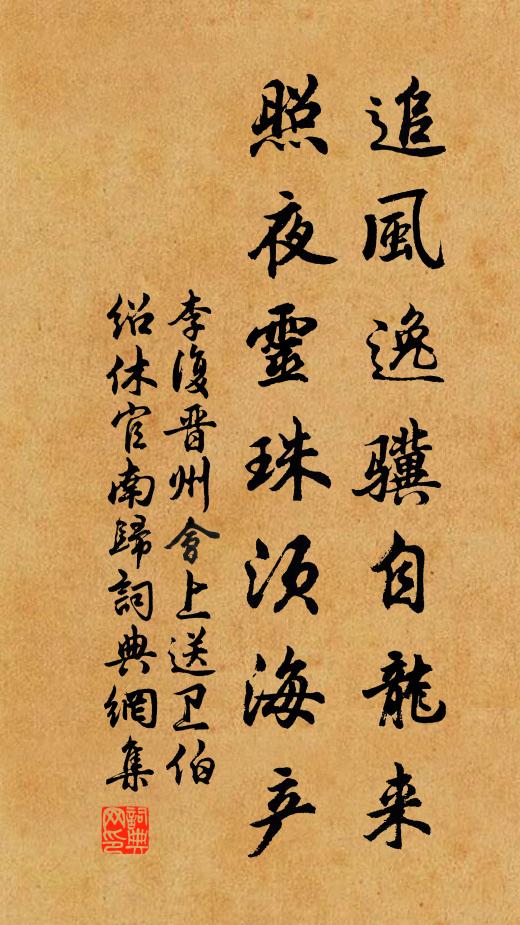 追風逸驥自龍来
照夜靈珠须海产
李復晋州會上送卫伯
绍休官南歸詞典網集
詞典
网印